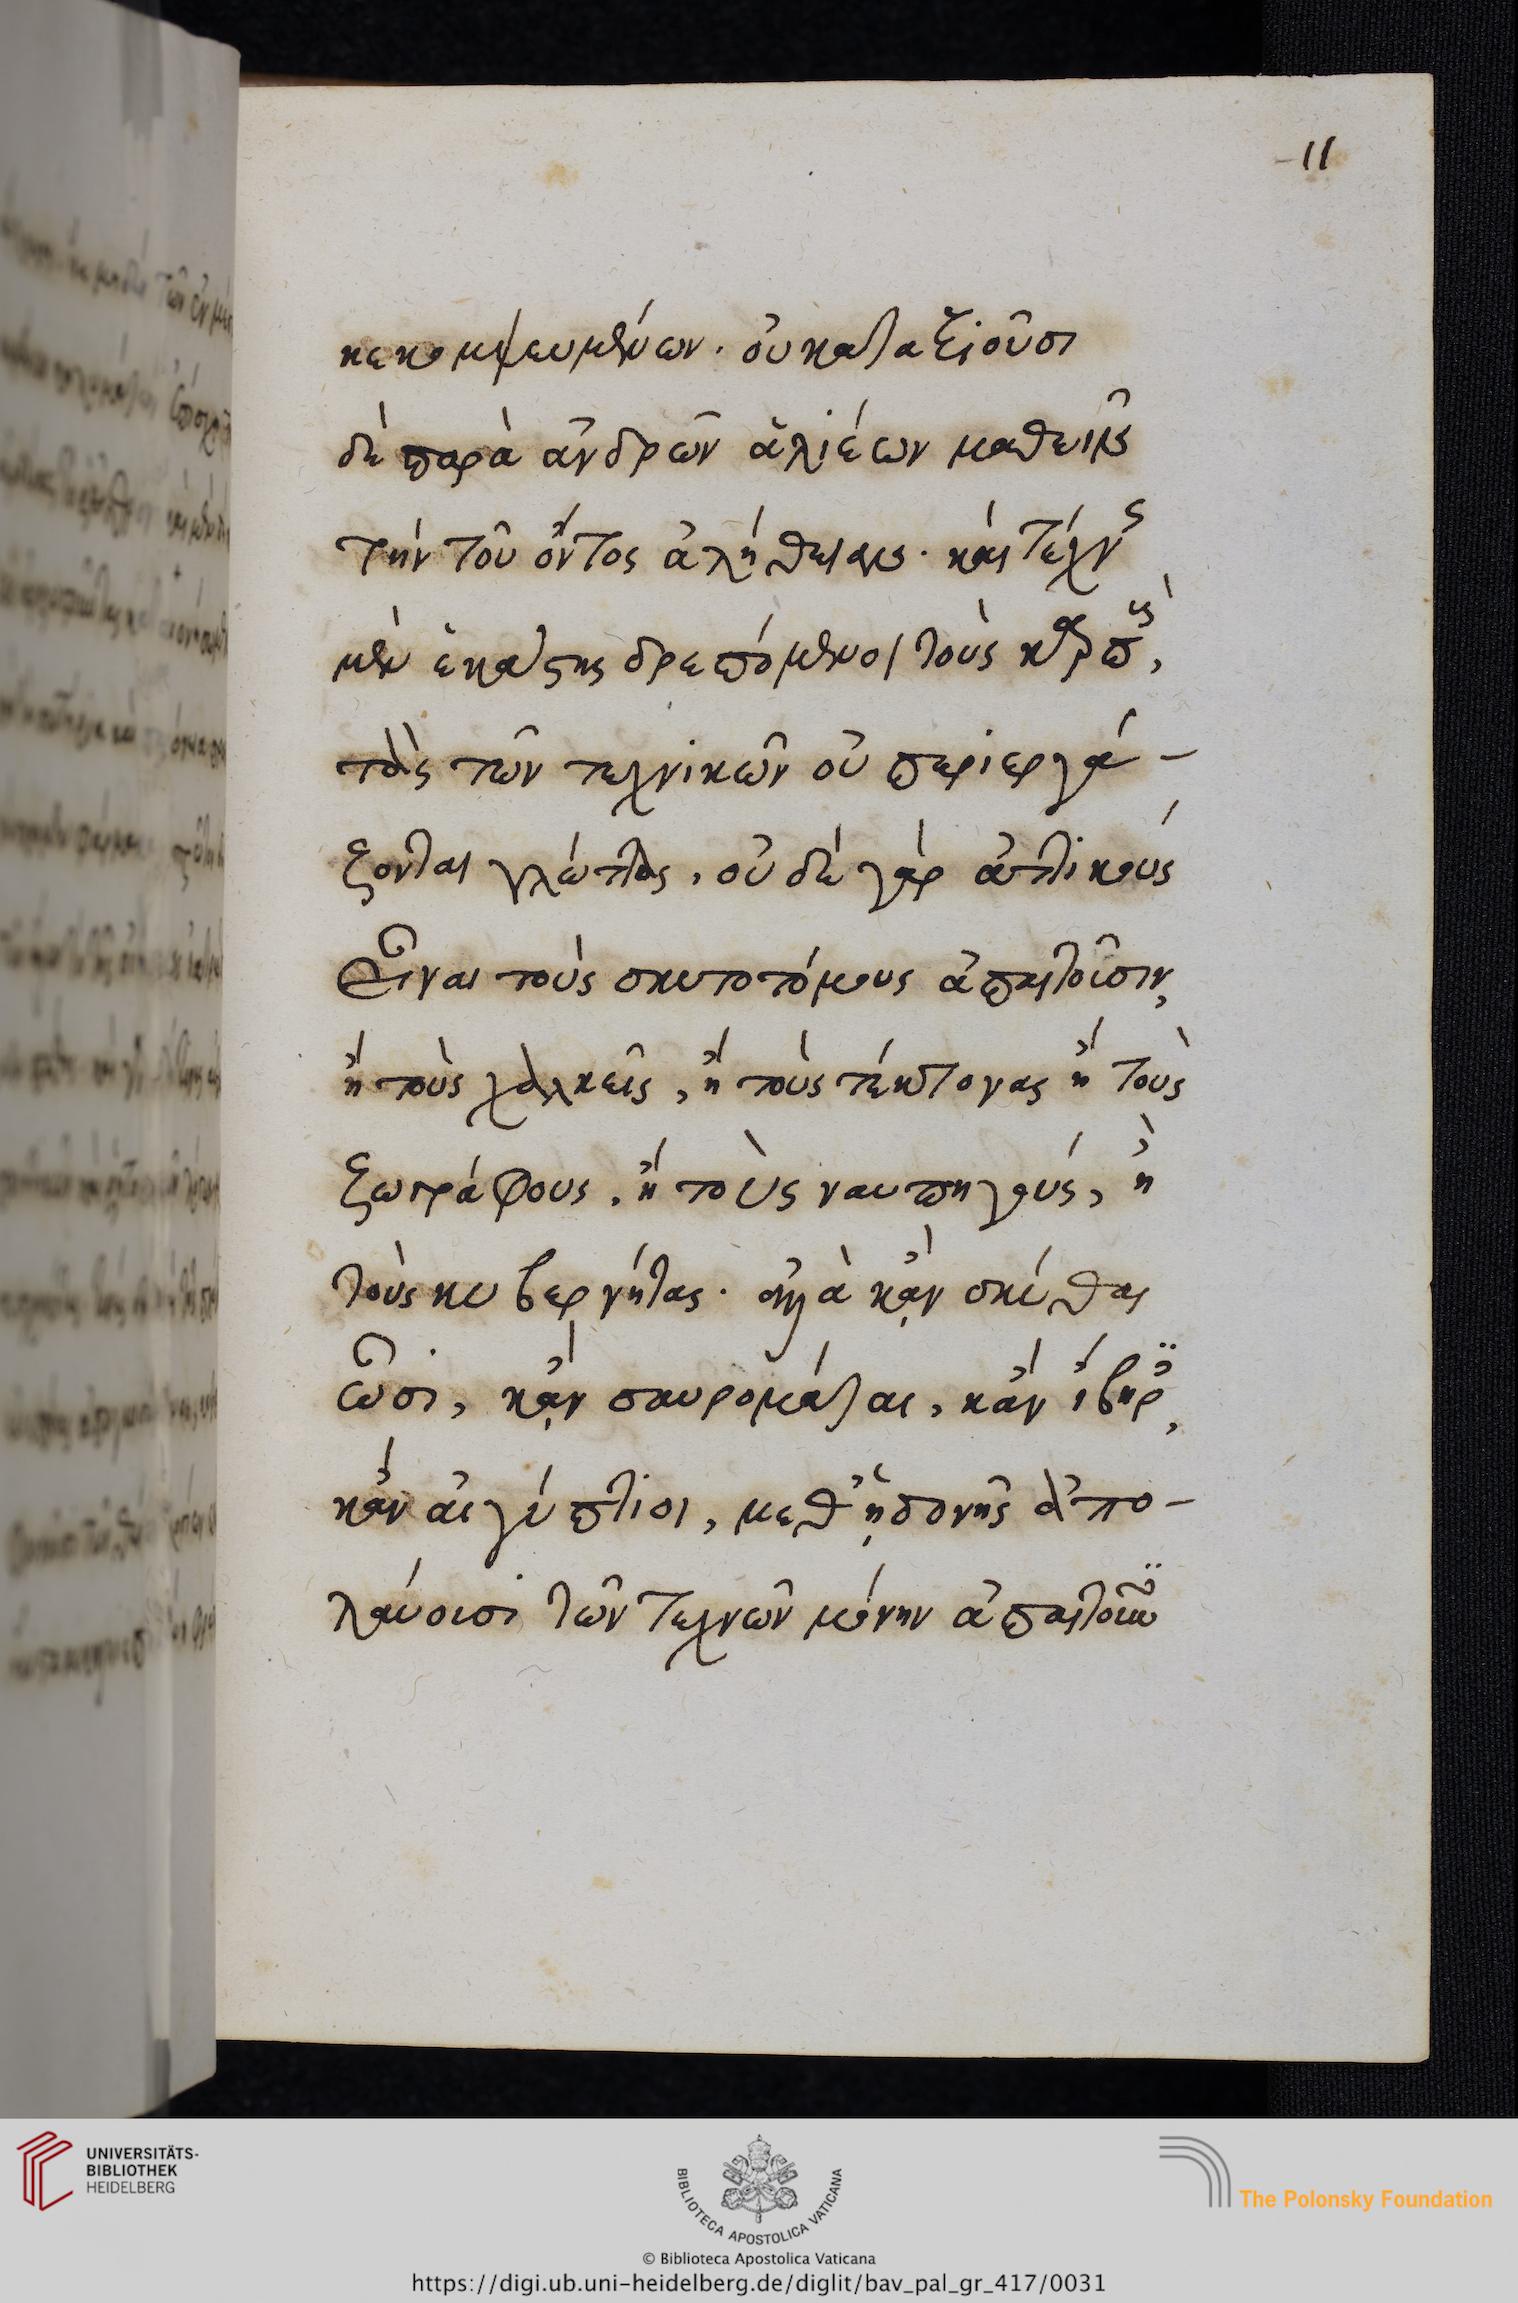 11
κεκομψευμένων. οὐ καταξιοῦσι
δὲ παρὰ ἀνδρῶν ἁλιέων μαθεῖν
τὴν τοῦ ὄντος ἀλήθειαν. καὶ τέχνης
μὲν ἑκάστης δρεπόμενοι τοὺς καρποὺς,
τὰς τῶν τεχνικῶν οὐ περιεργά-
ζονται γλώττας, οὐδὲ γὰρ ἀττικοὺς
εἶναι τοὺς σκυτοτόμους ἀπαιτοῦσιν,
ἢ τοὺς χαλκεῖς, ἢ τοὺς τέκτονας ἢ τοὺς
ζωγράφους, ἢ τοὺς ναυπηγούς, ἢ
τοὺς κυβερνήτας. ἀλλὰ κᾂν σκύθαι
ὦσι, κᾂν σαυρομάται, κἂν ἴβηρες,
κἂν αἰγύπτιοι, μεθ' ἡδονῆς ἀπο-
λαύουσι τῶν τεχνῶν μόνην ἀπαιτοῦντες
UNIVERSITÄTS-
BIBLIOTHEK
HEIDELBERG
BIBLIOTECA APOSTOLICA VATICANA
The Polonsky Foundation
© Biblioteca Apostolica Vaticana
https://digi.ub.uni-heidelberg.de/diglit/bav_pal_gr_417/0031